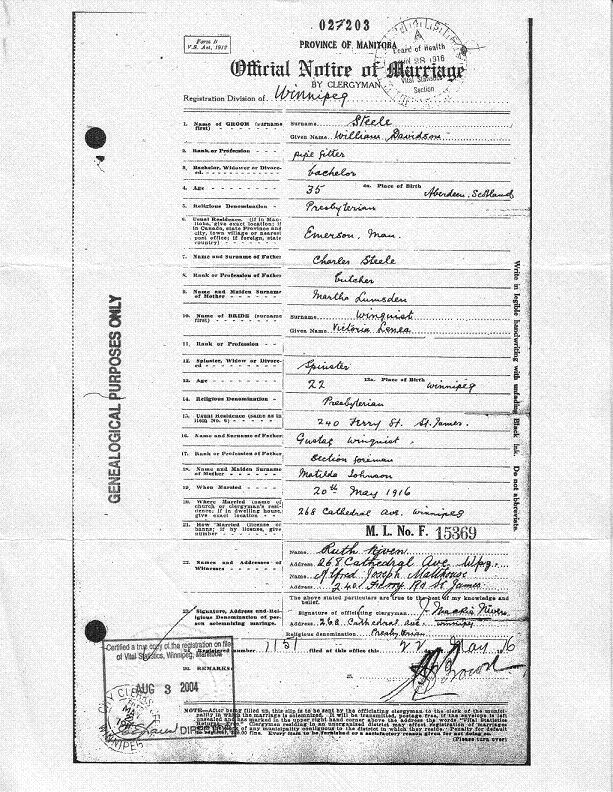 027203
Form D
V.S. Act, 1912
PROVINCE OF MANITOBA
Board of Health
28 1916
Vital Statistics
Section
Official Notice of Marriage
BY CLERGYMAN
Registration Division of Winnipeg
1. Name of GROOM (surname first) Surname Steele
Given Name William Davidson
2. Rank or Profession pipe fitter
3. Bachelor, Widower or Divorced bachelor
4. Age 35 4a. Place of Birth Aberdeen, Scotland
5. Religious Denomination Presbyterian
6. Usual Residence. (if in Manitoba, give exact location; if in Canada, state Province and city, town village or nearest post office; if foreign, state country) Emerson, Man.
7. Name and Surname of Father Charles Steele
8. Rank or Profession of Father Butcher
9. Name and Maiden Surname of Mother Martha Lumsden
10. Name of BRIDE (surname first) Surname Winquist
Given Name Victoria
11. Rank or Profession
12. Spinster, Widow or Divorced Spinster
13. Age 22 13a. Place of Birth Winnipeg
14. Religious Denomination Presbyterian
15. Usual Residence (same as in item No. 6) 240 Ferry St. St. James.
16. Name and Surname of Father Gustaf Winquist
17. Rank or Profession of Father Section foreman
18. Name and Maiden Surname of Mother Matilda Johnson
19. When Married 20th May 1916
20. Where Married (name of church or clergyman's residence; if in dwelling house, give exact location 268 Cathedral Ave, Winnipeg
21. How Married (license or banns; if by license, give number M. L. No. F. 15369
22. Names and Addresses of Witnesses Name Ruth Niven
Address 268 Cathedral Ave Wpg.
Name Alfred Joseph
Address 240 Ferry Rd St James
The above stated particulars are true to the best of my knowledge and belief.
23. Signature, Address and Religious Denomination of person solemnizing marriage. Signature of officiating clergyman Niven
Address 268 Cathedral Ave. Winnipeg
Religious denomination Presbyterian
24. Registered number 1151 filed at this office this 22 May 16
25.
26. REMARKS:
Certified a true copy of the registration on file
of Vital Statistics, Winnipeg, Manitoba
AUG 3 2004
DIRECTOR
CITY CLERKS
WINNIPEG
NOTE:—After being filled up, this slip is to be sent by the officiating clergyman to the clerk of the municipality in which the marriage is solemnized. It will be transmitted, postage free, if the envelope is left unsealed and has marked in the upper right hand corner above the address the words "Vital Statistics
(Please turn over)
Write in legible handwriting with unfading Black Ink. Do not abbreviate.
GENEALOGICAL PURPOSES ONLY